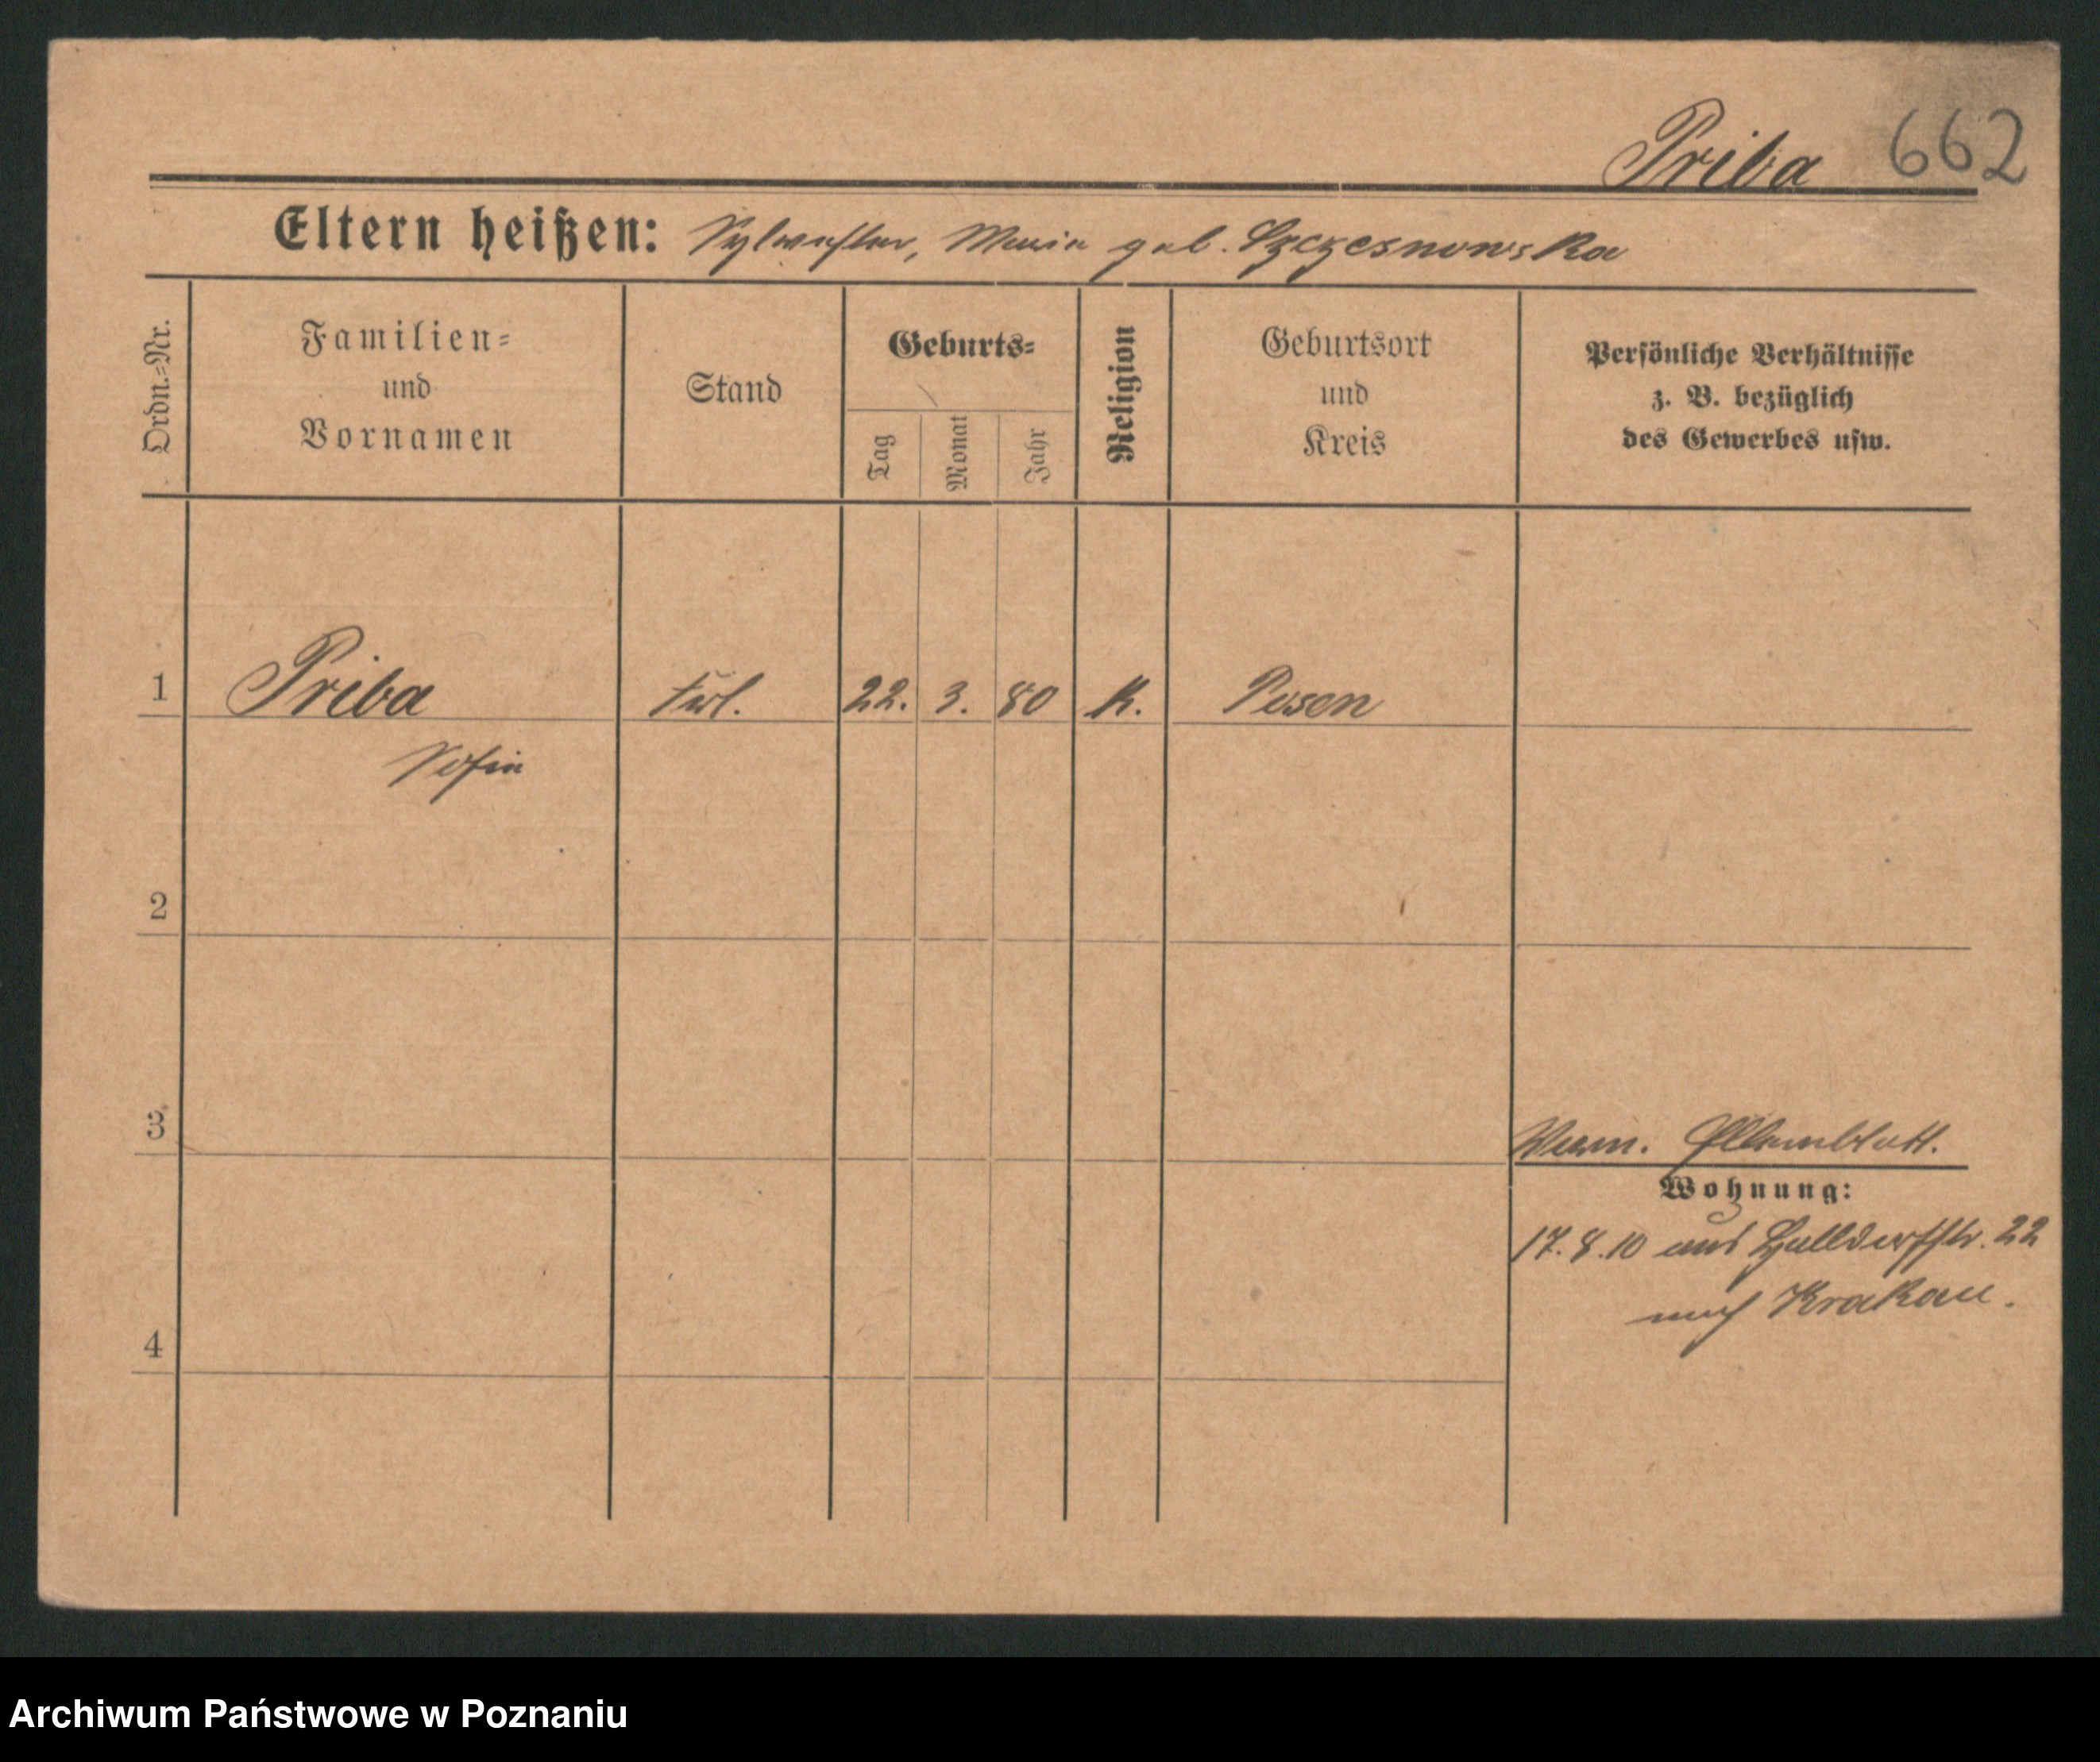 Priba 662
Eltern heißen: Sylvester, Maria geb. Szczesnowska
Ordn.-Nr.
Familien-
und
Vornamen
Stand
Geburts-
Tag
Monat
Jahr
Religion
Geburtsort
und
Kreis
Persönliche Verhältnisse
z. B. bezüglich
des Gewerbes usw.
1 Priba Frl. 22. 3. 80 K. Posen
Sofie
2
3
Verm. Elternblatt.
Wohnung:
17.8.10 aus 22
nach Krakau.
4
Archiwum Państwowe w Poznaniu